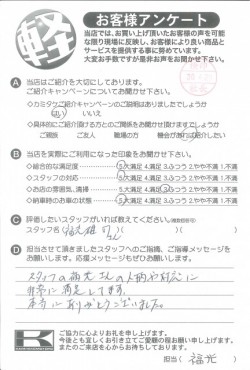 軽
お客様アンケート
当店では、お買い上げ頂いたお客様の声を可能
な限り現場に反映し、お客様により良い商品と
サービスを提供する事に努めています。
大変お手数ですが是非お声をお聞かせ下さい。
A 当店はご紹介を大切にしております。
ご紹介キャンペーンについてお聞かせ下さい。
<カミタケご紹介キャンペーンのご説明はありましたでしょうか
はい いいえ
<具体的にご紹介頂ける方とのご関係をお聞かせ頂けますでしょうか
ご親族 ご友人 職場の方 機会があれば紹介したい
B 当店を実際にご利用になった印象をお聞かせ下さい。
<総合的な満足度 5大満足 4.満足 3.ふつう 2.やや不満 1.不満
<スタッフの対応 5大満足 4.満足 3.ふつう 2.やや不満 1.不満
<お店の雰囲気、清掃 5大満足 4.満足 3.ふつう 2.やや不満 1.不満
<納車時のお車の状態 5大満足 4.満足 3.ふつう 2.やや不満 1.不満
C 評価したいスタッフがいれば教えてください。(複数回答可)
スタッフ名( さん)
D 担当させて頂きましたスタッフへのご指摘、ご指導メッセージを
お願い致します。応援メッセージもぜひお願い致します!
スタッフの福光さんの人柄や対応に
非常に満足してます。
本当にありがとうございました。
ご協力に心よりお礼を申し上げます。
今後とも宜しくお引き立てご愛顧の程お願い申し上げます。
またのご来店を心からお待ちしております。
担当( 福光 )